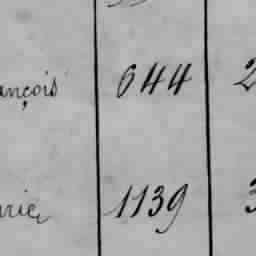 ançois 644 2
arie 1139 3